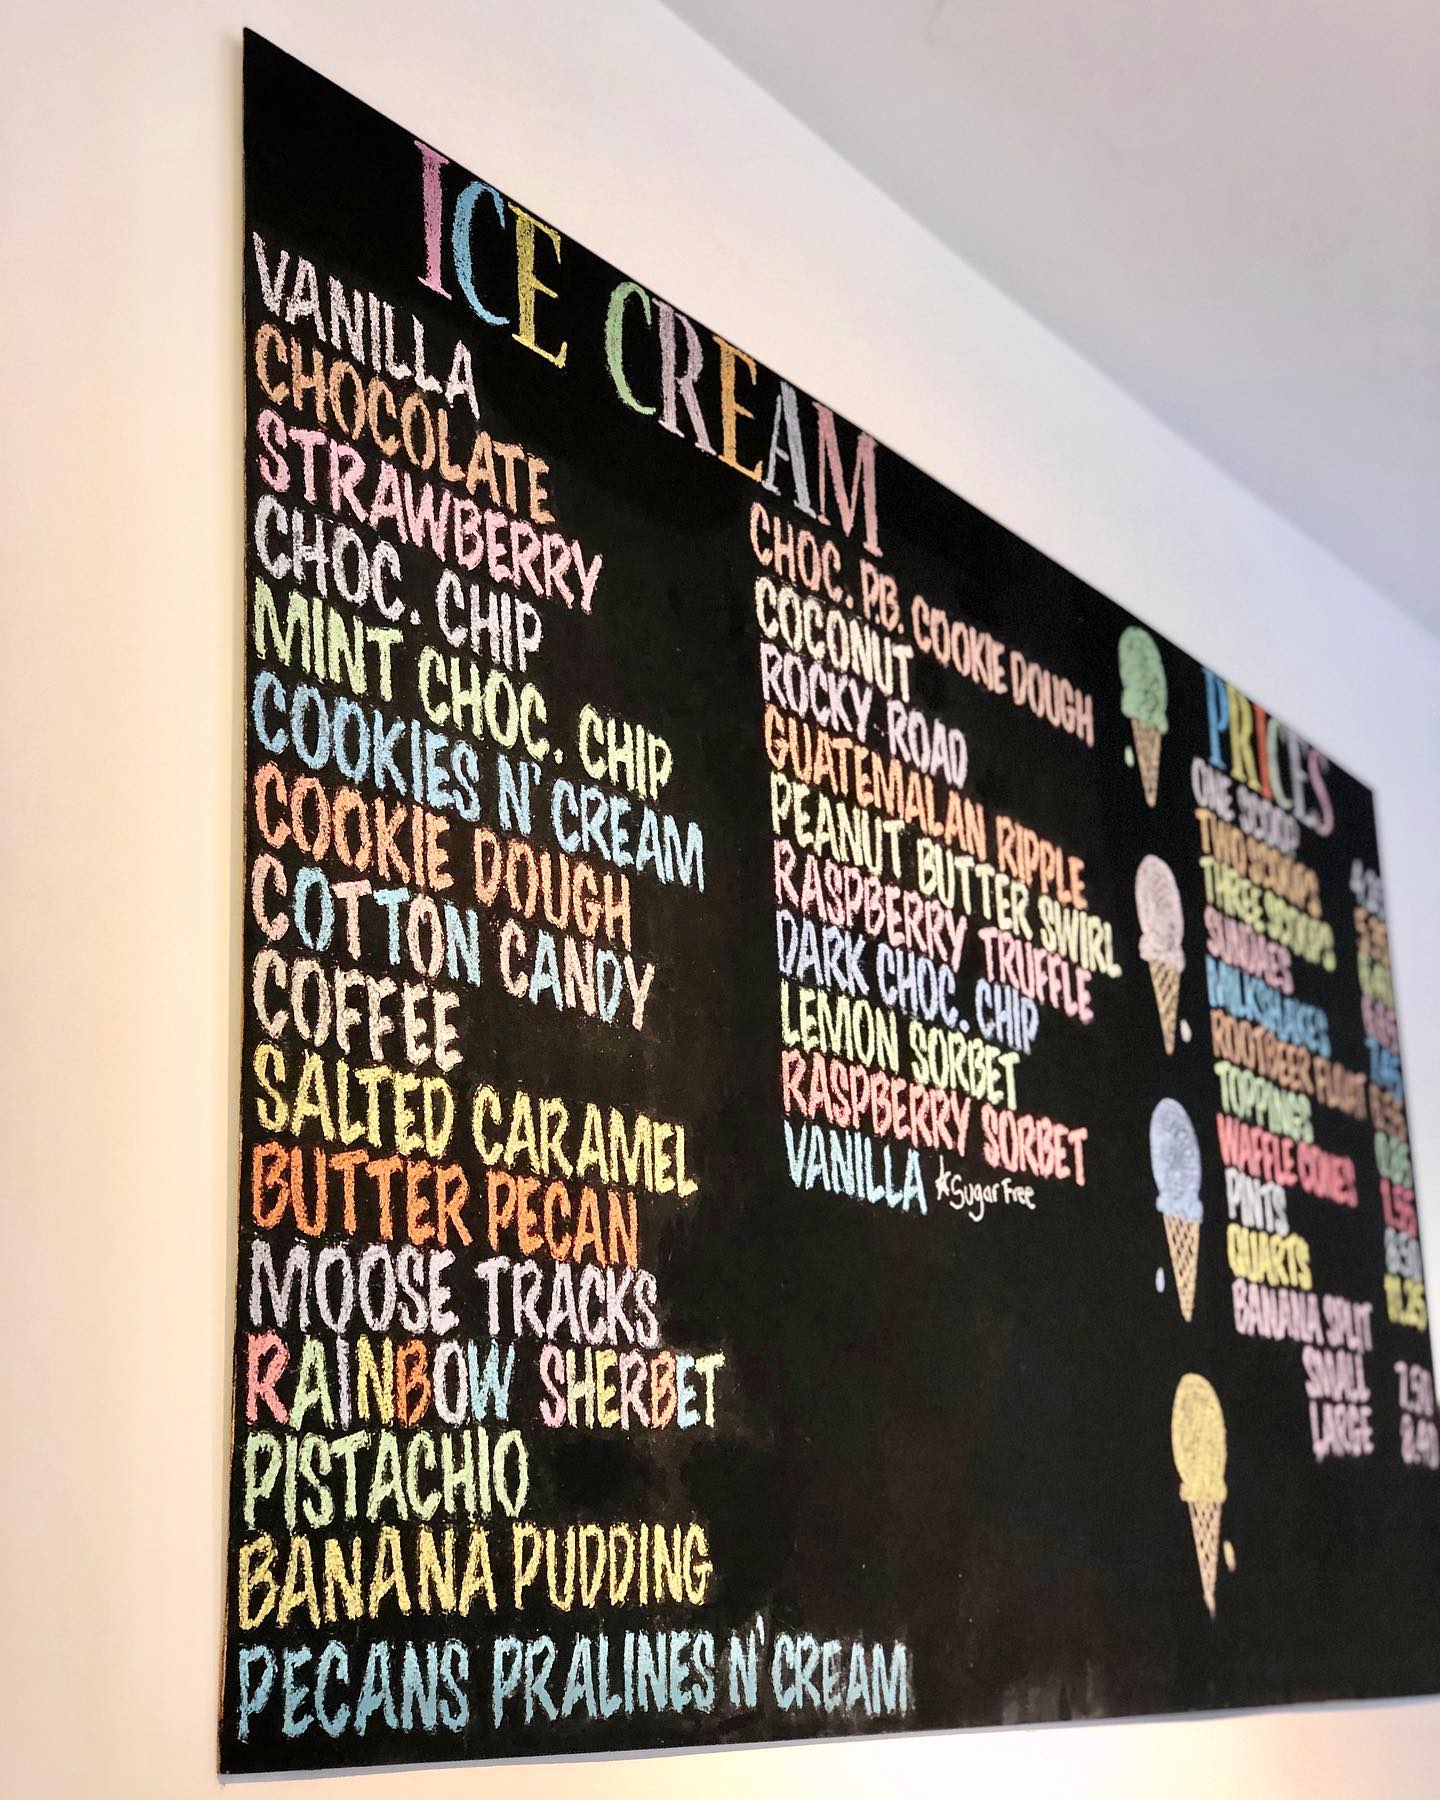 ICE CREAM
VANILLA
CHOCOLATE
STRAWBERRY
CHOC. CHIP
MINT CHOC. CHIP
COOKIES N' CREAM
COOKIE DOUGH
COTTON CANDY
COFFEE
SALTED CARAMEL
BUTTER PECAN
MOOSE TRACKS
RAINBOW SHERBET
PISTACHIO
BANANA PUDDING
PECANS PRALINES N' CREAM
CHOC. P.B. COOKIE DOUGH
COCONUT
ROCKY ROAD
GUATEMALAN RIPPLE
PEANUT BUTTER SWIRL
RASPBERRY TRUFFLE
DARK CHOC. CHIP
LEMON SORBET
RASPBERRY SORBET
VANILLA *Sugar Free
PRICES
ONE SCOOP
TWO SCOOPS
THREE SCOOPS
SUNDAES
MILKSHAKES
ROOTBEER FLOAT
TOPPINGS
WAFFLE CONES 1.55
PINTS
QUARTS 11.25
BANANA SPLIT
SMALL 7.50
LARGE 8.40